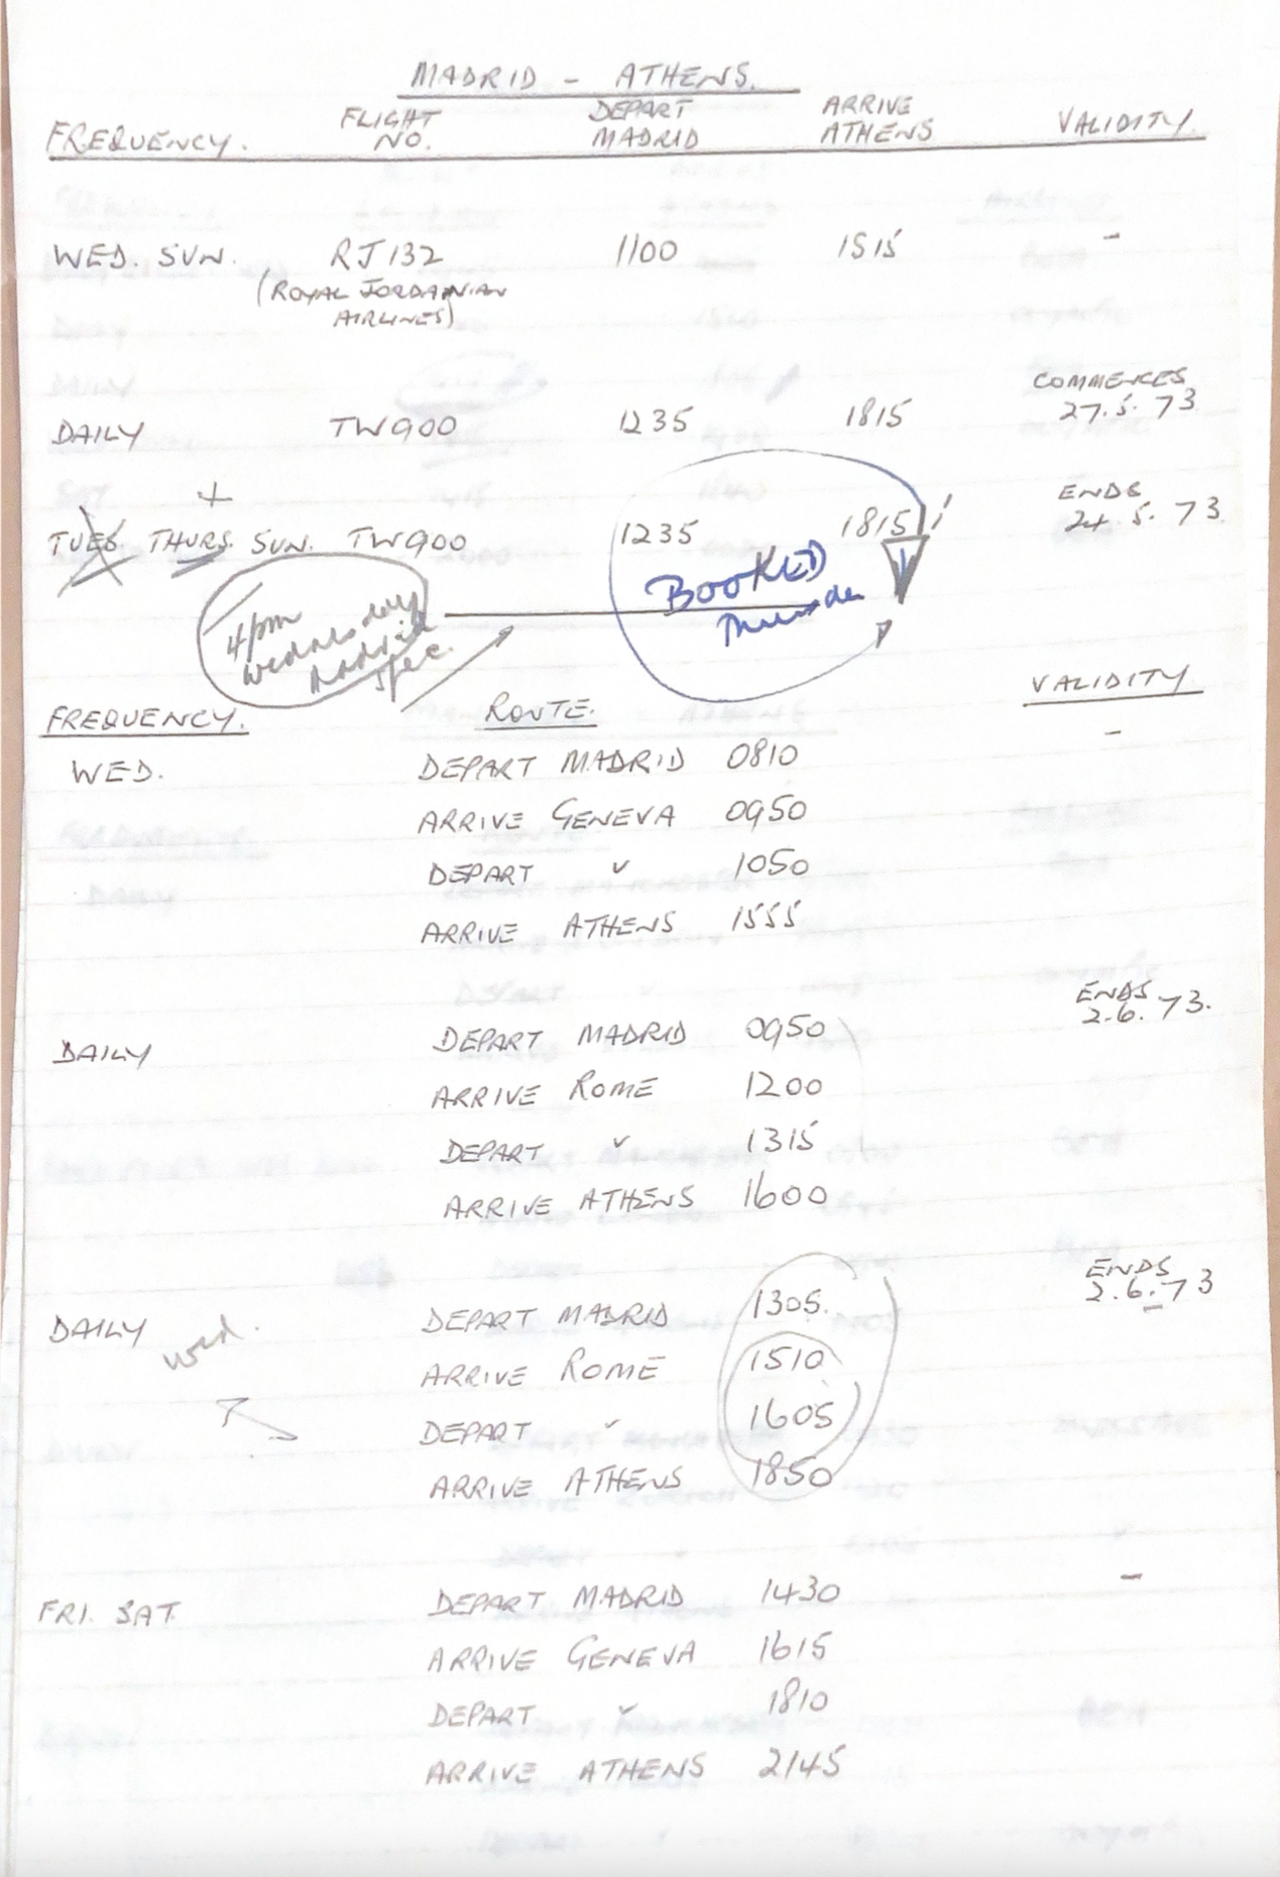 MADRID - ATHENS.
FREQUENCY. FLIGHT NO. DEPART MADRID ARRIVE ATHENS VALIDITY.
WED. SUN. RJ132 1100 1515 -
(ROYAL JORDANIAN
AIRLINES)
COMMENCES
DAILY TW900 1235 1815 27.5.73.
+
ENDS
TUES. THURS. SUN. TW900 1235 1815 24.5.73.
BOOKED
4pm
wednesday
madrid
spec.
FREQUENCY. ROUTE. VALIDITY.
WED. DEPART MADRID 0810 -
ARRIVE GENEVA 0950
DEPART " 1050
ARRIVE ATHENS 1555
ENDS
2.6.73.
DAILY DEPART MADRID 0950
ARRIVE ROME 1200
DEPART " 1315
ARRIVE ATHENS 1600
ENDS
2.6.73
DAILY wed. DEPART MADRID 1305.
ARRIVE ROME 1510
DEPART " 1605
ARRIVE ATHENS 1850
FRI. SAT. DEPART MADRID 1430 -
ARRIVE GENEVA 1615
DEPART " 1810
ARRIVE ATHENS 2145